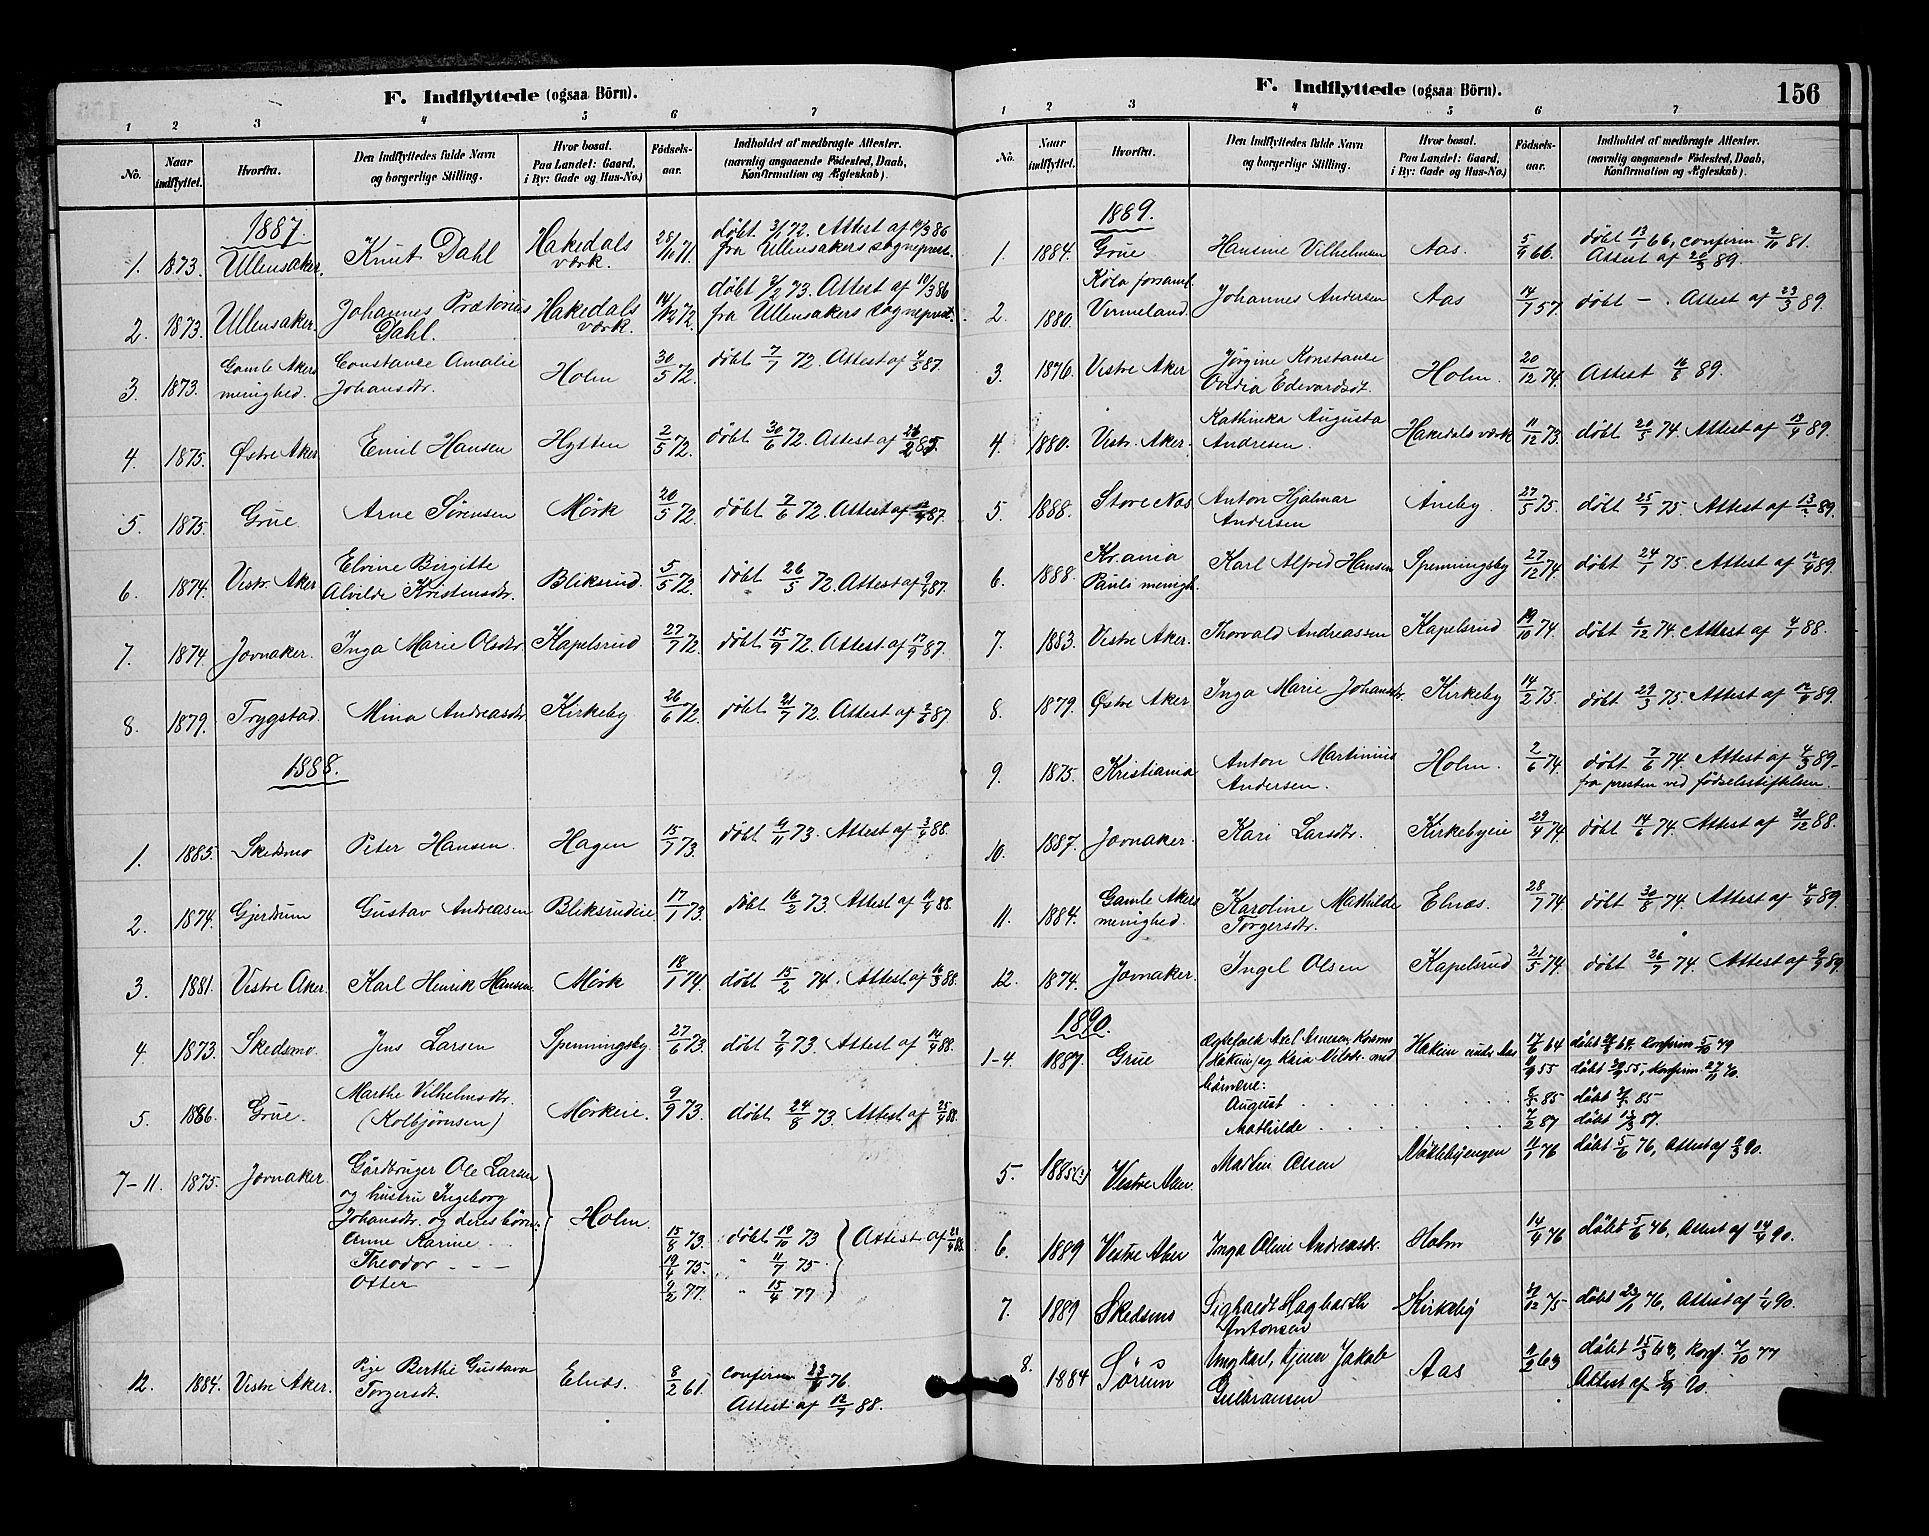 F. Indflyttede (ogsaa Börn).
1 2 3 4 5 6 7
No. Naar indflyttet. Hvorfra. Den Indflyttedes fulde Navn og borgerlige Stilling. Hvor bosat. Paa Landet: Gaard, i By: Gade og Hus-No.) Födsels-aar. Indholdet af medbragte Attester. (navnlig angaaende Födested, Daab, Konfirmation og Ægteskab).
1887.
1. 1873. Ullensaker. Knut Dahl Hakedals værk. 28/11 71. døbt 3/1 72. Attest af 19/3 86 fra Ullensakers sogneprest.
2. 1873. Ullensaker. Johannes Prætorius Dahl. Hakedals værk. 14/12 72. døbt 2/2 73. Attest af 19/3 86 fra Ullensakers sogneprest.
3. 1873. Gamle Akers menighed. Constance Amalie Johansdtr. Holm 30/5 72. døbt 7/7 72. Attest af 4/5 87.
4. 1875. Østre Aker Emil Hansen Hytten 2/5 72. døbt 30/6 72. Attest af 26/2 85.
5. 1875. Grue Arne Sørensen Mørk 20/5 72. døbt 7/6 72. Attest af 87.
6. 1874. Vestr. Aker Elvine Birgitte Alvilde Kristensdtr. Bliksrud. 5/5 72. døbt 26/5 72. Attest af 9/9 87.
7. 1874 Jevnaker. Inga Marie Olsdtr. Kapelsrud 27/7 72. døbt 15/9 72. Attest af 17/9 87.
8. 1879. Trygstad. Mina Andreasdtr. Kirkeby 26/6 72. døbt 21/7 72. Attest af 87
1888.
1. 1885. Skedsmo Peter Hansen. Hagen 15/7 73. døbt 9/11 73. Attest af 3/4 88.
2. 1874. Gjerdrum Gustav Andreasen Bliksrudeie 17/1 73. døbt 16/2 73. Attest af 11/4 88.
3. 1881. Vestre Aker. Karl Henrik Hansen. Mørk 18/1 74. døbt 15/2 74. Attest af 16/3 88.
4. 1873. Skedsmo. Jens Larsen Spenningsby. 27/6 73. døbt 7/9 73. Attest af 14/4 88.
5. 1886. Grue. Marthe Vilhelmsdtr. (Kolbjørnsen) Mørkeie. 9/9 73. døbt 24/8 73. Attest af 25/4 88.
7-11. 1875. Jevnaker Gårdbruger Ole Larsen
og hustru Ingeborg
Johansdtr. og deres børn: Holm.
Anne Karine 15/8 73. døbt 19/10 73 Attest af 88.
Theodor 19/4 75. " 11/7 75
Otter 9/2 77. " 15/4 77
12. 1884. Vestre Aker. Pige Berthe Gustava Torgersdt. Elnæs. 8/2 61. confirm. 76. Attest af 12/7 88.
F. Indflyttede (ogsaa Börn). 156
1 2 3 4 5 6 7
No. Naar indflyttet. Hvorfra. Den Indflyttedes fulde Navn og borgerlige Stilling. Hvor bosat. Paa Landet: Gaard, i By: Gade og Hus-No.) Födsels-aar. Indholdet af medbragte Attester. (navnlig angaaende Födested, Daab, Konfirmation og Ægteskab).
1889.
1. 1884. Grue Hansine Vilhelmsen Aas. 5/9 66. døbt 13/1 66, confirm. 2/10 81. Attest af 20/3 89.
2. 1880. Køla forsaml. Vermeland. Johannes Andersen Aas 14/7 57. døbt -. Attest af 23/3 89.
3. 1876. Vestre Aker Jørgine Konstanse Ovidia Edevardsdt. Holm. 20/12 74. Attest 16/8 89.
4. 1880. Vestr. Aker. Kathinka Augusta Andresen. Hakedals værk 11/12 73. døbt 20/5 74. Attest af 12/4 89.
5. 1888. Store Nas Anton Hjalmar Andersen Åneby. 27/5 75. døbt 25/7 75 Attest af 13/2 89.
6. 1888. Kr.ania Pauls menigh. Karl Alfred Hansen Spenningsby 27/12 74. døbt 24/1 75 Attest af 12/4 89.
7. 1883. Vestre Aker. Thorvald Andreassen Kapelsrud 19/10 74. døbt 6/12 74. Attest af 4/7 88.
8. 1879. Østre Aker. Inga Marie Johansdtr. Kirkeby 14/2 75. døbt 29/3 75. Attest af 89.
9. 1875. Kristiania Anton Martinius Andersen. Holm. 2/6 74. døbt 7/6 74. Attest af 89- fra presten ved fødselsstiftelsen.
10. 1887. Jevnaker. Kari Larsdtr. Kirkebyeie 29/4 74. døbt 14/6 74. Attest af 31/12 88.
11. 1884. Gamle Akers menighed. Karoline Mathilde Torgersdtr. Elnæs. 28/7 74 døbt 30/8 74. Attest af 4/4 89.
12. 1874. Jevnaker. Ingel Olsen Kapelsrud 21/5 74. døbt 26/7 74. Attest af 89.
1890.
1-4 1887. Grue Ægtefolk Axel Arnesen Korsmo Hakein under Aas 17/6 64 døbt 64. Konfirm. 5/10 79
(Hakein) og Karia Nilsdr. med 55 døbt 55, Konfirm. 70.
börnene:
August 85 døbt 85
Mathilde 7/2 87 døbt 13/3 87.
5. 1885(?) Vestre Aker. Martin Olsen Nöklebyengen 11/1 76 døbt 5/6 76, Attest af 90.
6. 1889 Vestre Aker Inga Oline Andreasdr. Holm 14/4 76 døbt 5/6 76, Attest af 14/4 90.
7. 1889 Skedsmo Sighardt Hagbarth Antonsen Kirkeby 12 75 døbt 23/1 76, Attest af 1/4 90.
8. 1884 Sørum Ungkarl, tjener Jakob Gulbransen Aas 63 døbt 15/3 63, Konf. 10 77 Attest af 90.